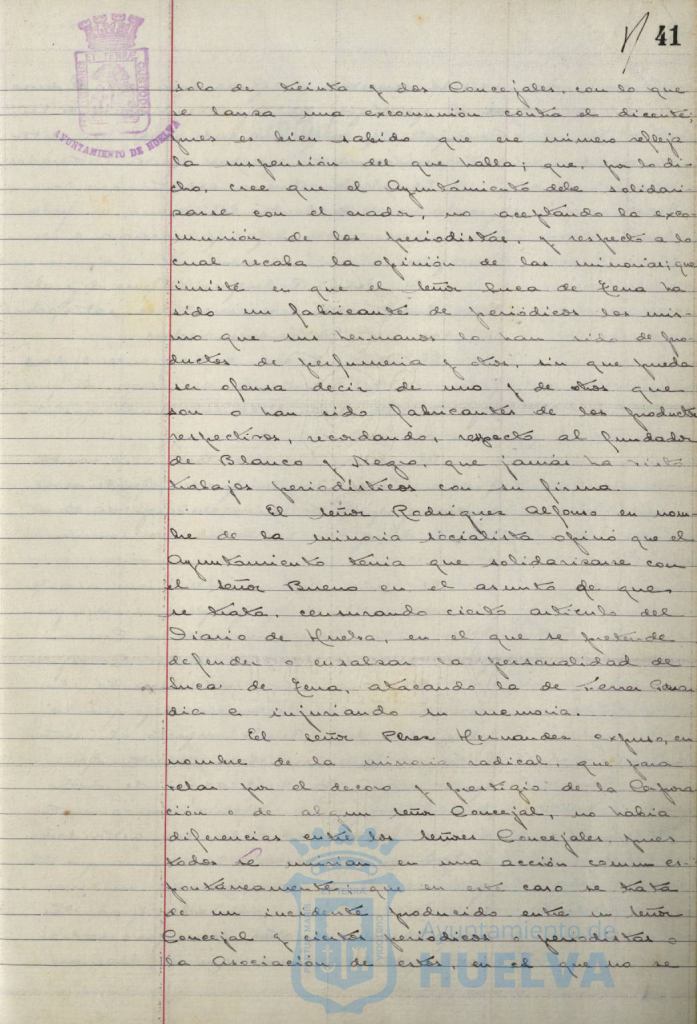 41
AYUNTAMIENTO DE HUELVA
solo de treinta y dos Concejales, con lo que
se lanza una excomunión contra el dicente;
pues es bien sabido que ese número refleja
la suspensión del que habla; que, por lo di-
cho, cree que el Ayuntamiento debe solidari-
zarse con el orador, no aceptando la exco-
munión de los periodistas, y respecto a lo
cual recaba la opinión de las minorias; que
insiste en que el señor Luca de Tena ha
sido un fabricante de periódicos lo mis-
mo que sus hermanos lo han sido de pro-
ductos de perfumeria y otros, sin que pueda
ser ofensa decir de uno y de otros que
son o han sido fabricantes de los productos
respectivos, recordando, respecto al fundador
de Blanco y Negro, que jamás ha visto
trabajos periodísticos con su firma.
El señor Rodriguez Alfonso en nom-
bre de la minoria socialista opinó que el
Ayuntamiento tenia que solidarizarse con
el señor Bueno en el asunto de que
se trata, censurando cierto artículo del
Diario de Huelva, en el que se pretende
defender o ensalzar la personalidad de
Luca de Tena, atacando la de
dia e injuriando su memoria.
El señor Perez Hernandez expuso, en
nombre de la minoria radical, que para
velar por el decoro y prestigio de la Corpora-
ción o de algun señor Concejal, no habia
diferencias entre los señores Concejales, pues
todos se unirian en una acción comun es-
pontáneamente; que en este caso se trata
de un incidente producido entre un señor
Concejal y ciertos periódicos o periodistas o
la Asociación de estos, en el que no se
Ayuntamiento de
HUELVA